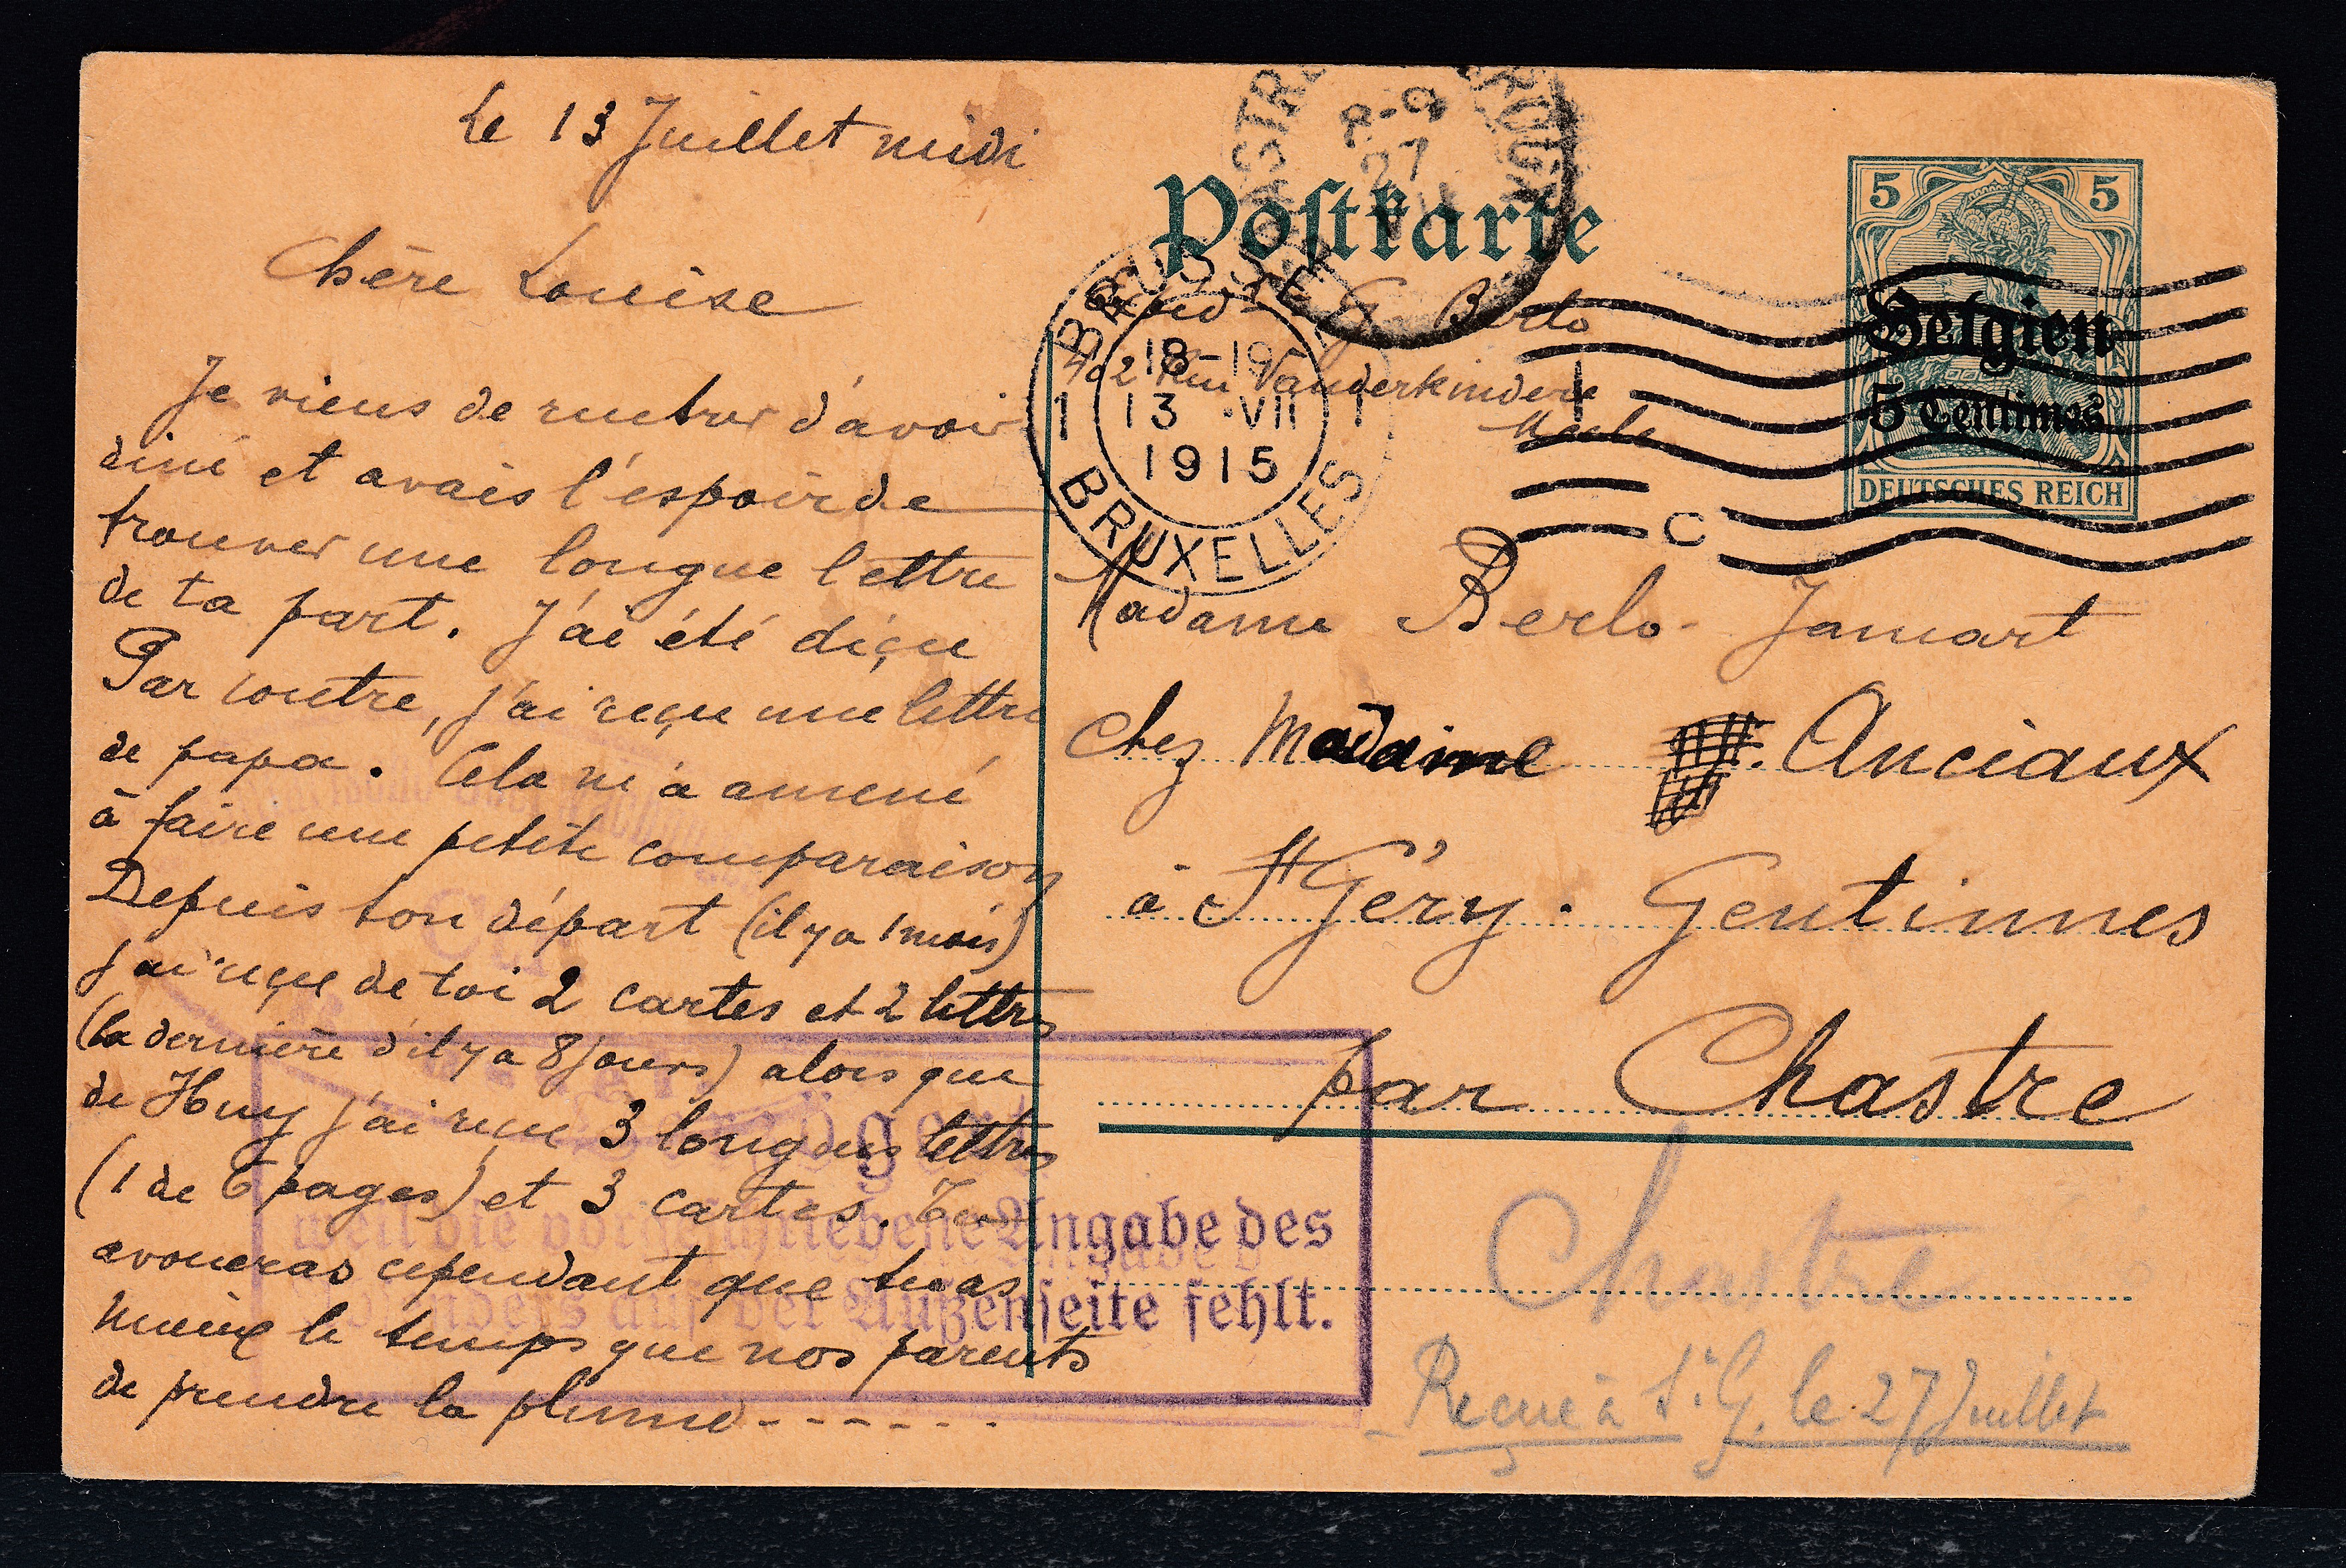 Le 13 Juillet midi
Chère Louise
Je viens de rentrer d'avoir
diné et avais l'espoir de
trouver une longue lettre
de ta part. J'ai été déçu
Par contre, j'ai reçu une lettre
de papa. Cela m'a amené
à faire une petite comparaison
Depuis ton départ (il y a 1 mois)
j'ai reçu de toi 2 cartes et 2 lettres
(la dernière d'il y a 8 jours) alors que
de Huy j'ai reçu 3 longues lettres
(1 de 6 pages) et 3 cartes. Tu
avoueras cependant que tu as
mieux le temps que nos parents
de prendre la plume - - - - - -
CHASTRE
8-9
27
Postkarte
G. Berlo
402 Rue Vanderkindere
Uccle
BRUSSEL
18-19
1 13 VII 1
1915
BRUXELLES
1
C
5 5
Belgien
5 Centimes
DEUTSCHES REICH
Madame Berlo-Jamart
Chez Madame Anciaux
à St Géry. Gentinnes
par Chastre
Chastre
Reçue à St. G. le 27 Juillet
Verzögert
weil die vorgeschriebene Angabe des
Absenders auf der Außenseite fehlt.